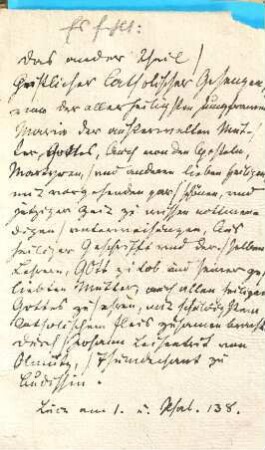 Es fehlt:
Das ander Theil /
Geistlicher Catholischer Gesenge,
von der allerheiligsten Jungfrawen
Maria der außerwelten Mut-
ter Gottes, Auch von den Aposteln,
Martyrern, / und anderen lieben Heiligen,
mit vorgehenden gar schönen, und
jetziger Zeit zu wissen nottwen-
digen / unterweisungen, Aus
heiliger Geschrifft und der / selben
Lehrern, Gott zu lob und seiner ge-
liebten Mutter, auch allen heiligen
Gottes zu ehren, mit schuldigstem
Catholischem Fleis zusamen bracht
durch / Johann Leisentrit von
Olmutz, / Thumdechant zu
Budissin.
Luce am 1. u. Psal. 138.